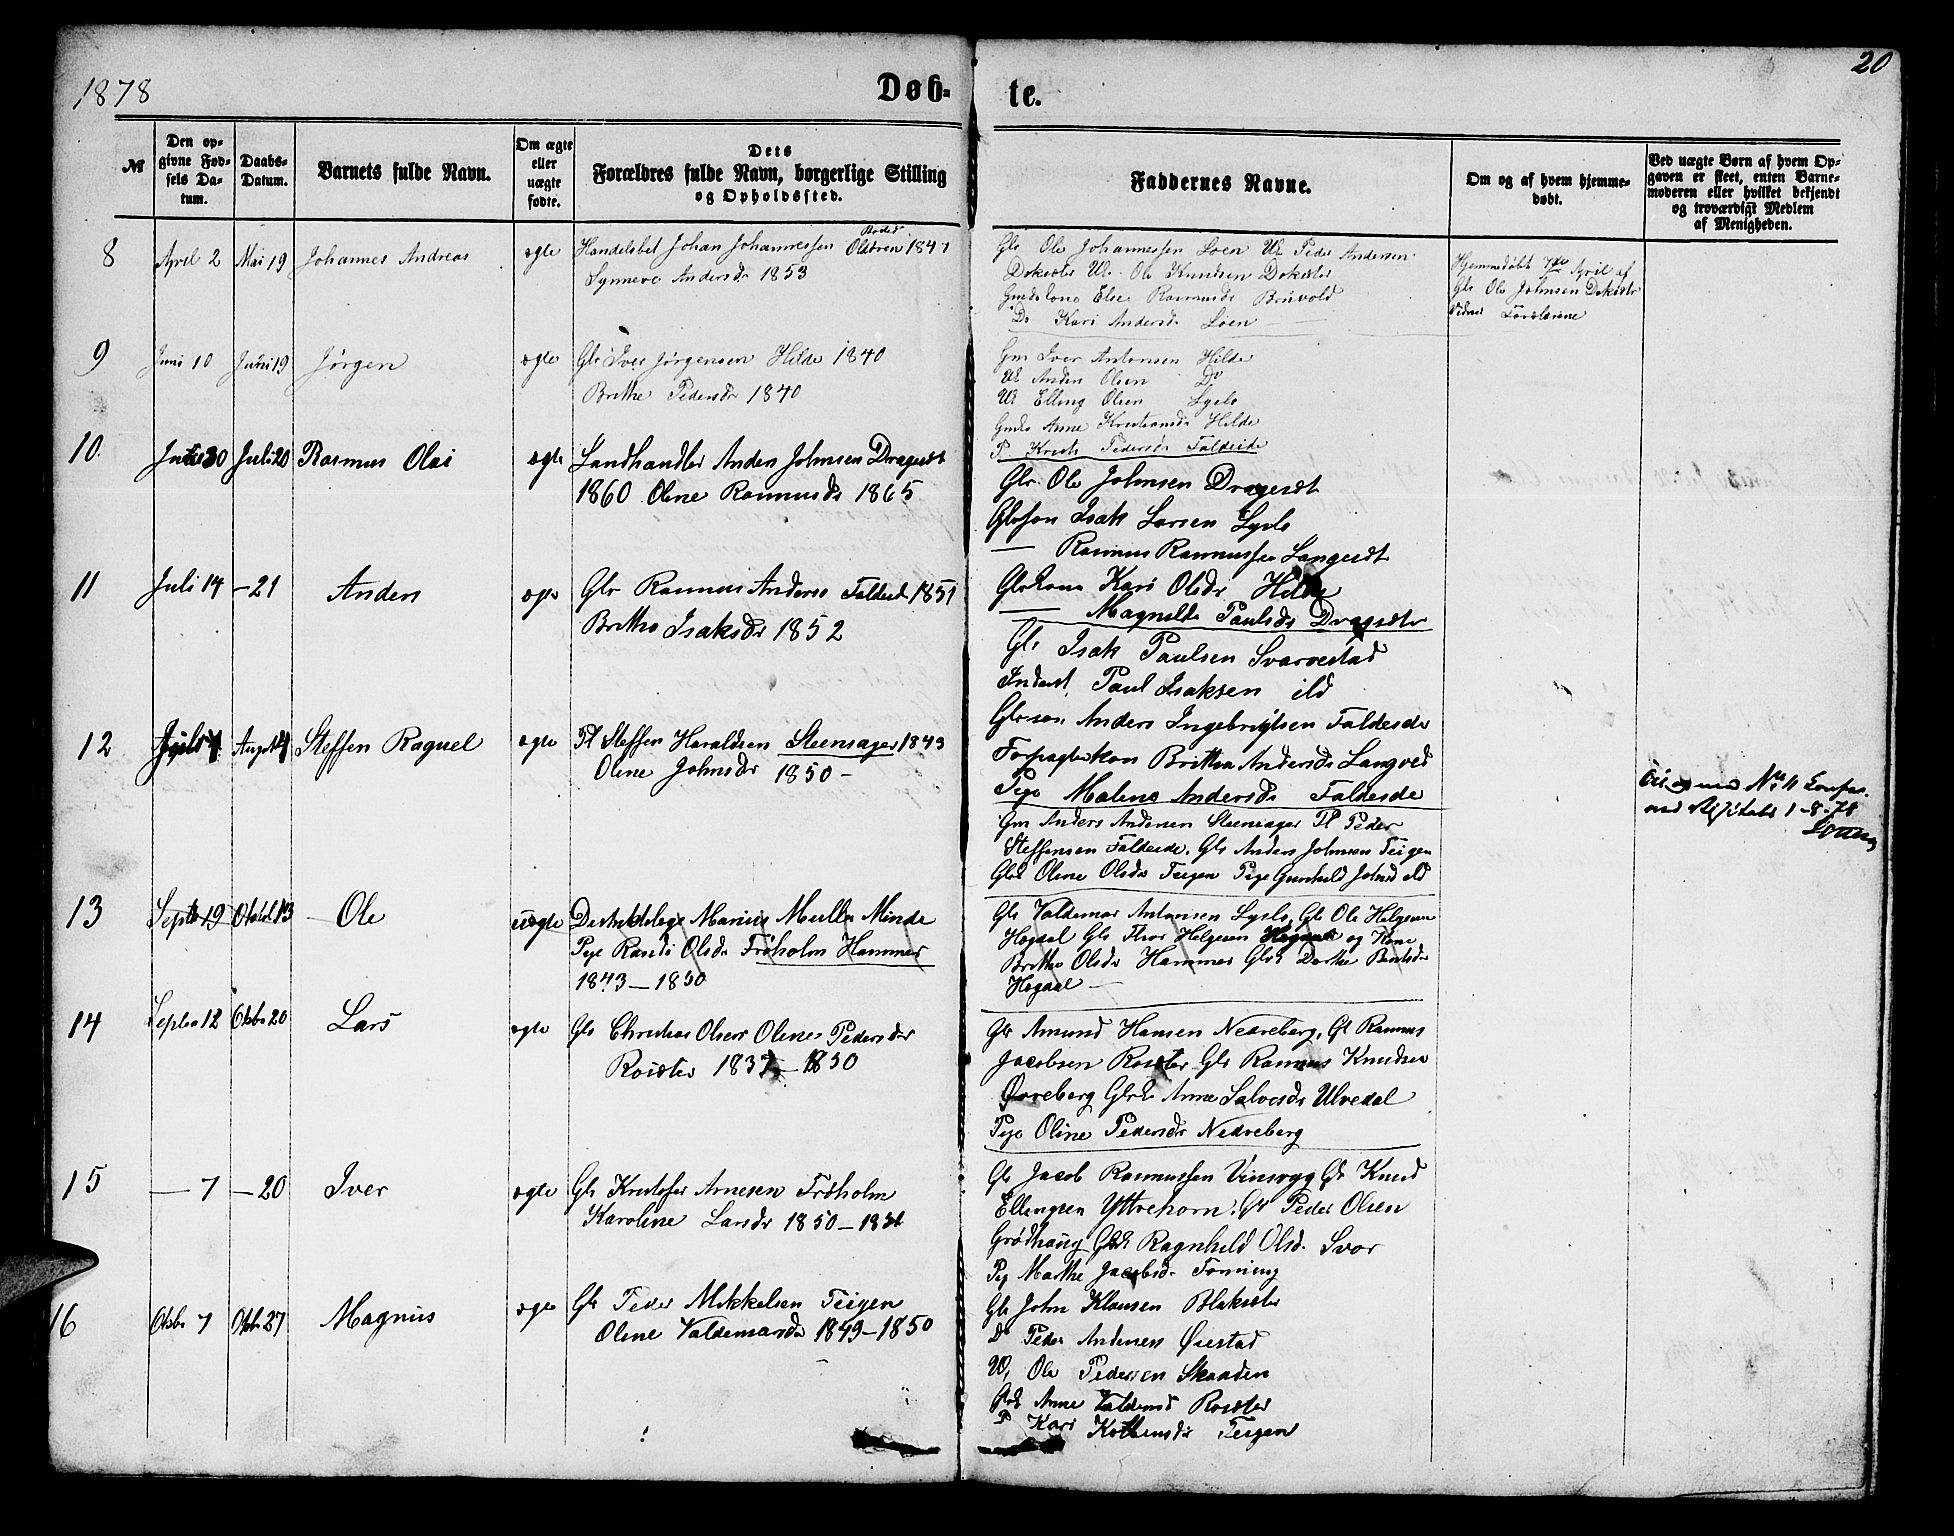 1878
Døb-
te.
20
№
Den op-
givne Fød-
sels Da-
tum.
Daabs-
Datum.
Barnets fulde Navn.
Om ægte
eller
uægte
fødte.
Dets
Forældres fulde Navn, borgerlige Stilling
og Opholdssted.
Faddernes Navne.
Om og af hvem hjemme-
døbt.
Ved uægte Børn af hvem Op-
gaven er skeet, enten Barne-
moderen eller hvilket bekjendt
og troværdigt Medlem
af Menigheden.
8 April 2 Mai 19 Johannes Andreas ægte Handelsbet Johan Johannessen Oldören 1847
Synneve Andersdr 1853
Gbr Ole Johannessen Loen Uk Peder Andersen
Dokester Uk Ole Knudsen Dokester
Else Rasmusdr Bruvold
Do Kari Andersdr Loen
Hjemmedøbt April af
Gbr Ole Johnsen
9 Juni 10 Juni 19 Jørgen ægte Gbr Iver Jørgensen Hilde 1840
Brithe Pedersdr 1840
Gm Iver Antonsen Hilde
Uk Anders Olsen Do
Uk Elling Olsen Lysls
Anne Kristiansdr Hilde
P. Pedersdr Faldeide
10 Juli 20 Rasmus Olai ægte Landhandler Anders Johnsen Dragesdt
1860 Oline Rasmusdr 1865
Gbr. Ole Johnsen Dragesdt
Gbrson Isak Larsen Lysls
— Rasmus Rasmussen Langesdt
Gbrkone Kari Olsdr Hilde
— Magnilde Paulsdr
11 Juli 14 – 21 Anders ægte Gbr Rasmus Anders Faldeid 1851
Brithe Isaksdr 1852
Gbr Isak Paulsen Svarvestad
Inderst Paul Isaksen ibd
Gbrson Anders Ingebrigtsen Faldeide
Forpagterkon Britha Andersdr Langved
Pige Malene Andersdr Faldeide
12 August 4 Steffen Raguel ægte Pl Steffen Haraldsen Steensager 1843
Oline Johnsdr 1850 –
Gm Anders Andersen Steensager Pl Peder
Steffensen Faldeide. Gbr Anders Johnsen Teigen
Oline Olsdr Teigen Pige Gunhild Johnsd ibd
1-8-78
13 Septb 19 Oktob 13 Ole uægte Marius Muller Minde
Pige Randi Olsdr Frøholm Hammer
1843 – 1850
Gbr Valdemar Antonsen Lysls, Gbr Ole Helgesen
Hogaal Gbr Thor Helgesen Hogaal og Kone
Brithe Olsdr Hammer Dorthe Bentsdr
Hogaal –
14 Septbr 12 Oktbr 20 Lars ægte Gbr Christian Olsen Oline Pedersdr
Roisæter 1837 – 1850
Gbr Amund Hansen Nedreberg, Gbr Rasmus
Jacobsen Gbr Rasmus Knudsen
Øvreberg Anne Salvesdr Ulvedal
Pige Oline Pedersdr Nedreberg
15 – 7 – 20 Iver ægte Gbr Kristofer Arnesen Frøholm
Karoline Larsdr 1850 – 1851
Gbr Jacob Rasmussen Vinsryg Gbr Knud
Ellingsen Yttrehorn. Gbr Peder Olsen
Grødhaug Ragnhild Olsd. Svor
Pig Marthe Jacobsdr
16 Oktbr 7 Oktbr 27 Magnus ægte Gbr Peder Mikkelsen Teigen
Oline Valdemarsdr 1849 – 1850
Gbr John Klausen Blaksæter
Do Peder Andersen Øiestad
U, Ole Pedersen Skaaden
Anne
P Kari Teigen